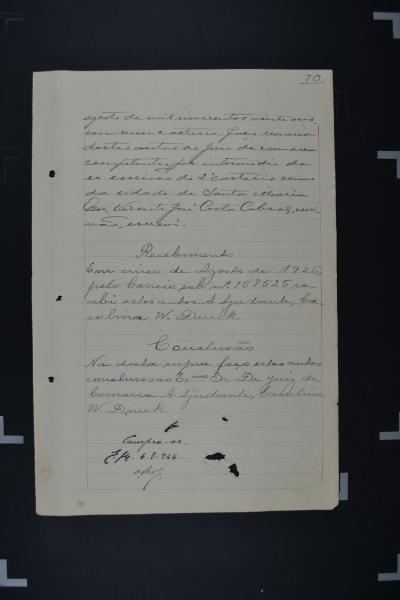 70.
agosto de mil novecentos vinte seis
em meu cartorio, faço remessa
destes autos ao Juiz de comarca
competente, por intermedio do
sr. escrivão do 2º Cartorio
da cidade de Santa Maria
Eu, Vicente José Costa Cabral, escri
vão, escrevi.
Recebimento
Em cinco de Agosto de 1926
pelo Correio sob nº 157525 re-
cebi estes autos. A Ajudante, Ca
rolina W. Druck
Conclusão
Na data supra faço estes autos
conclusos ao Exmo Sr. Dr. Juiz de
Comarca. A Ajudante, Carolina
W. Druck
Cumpra-se.
6.8.926.